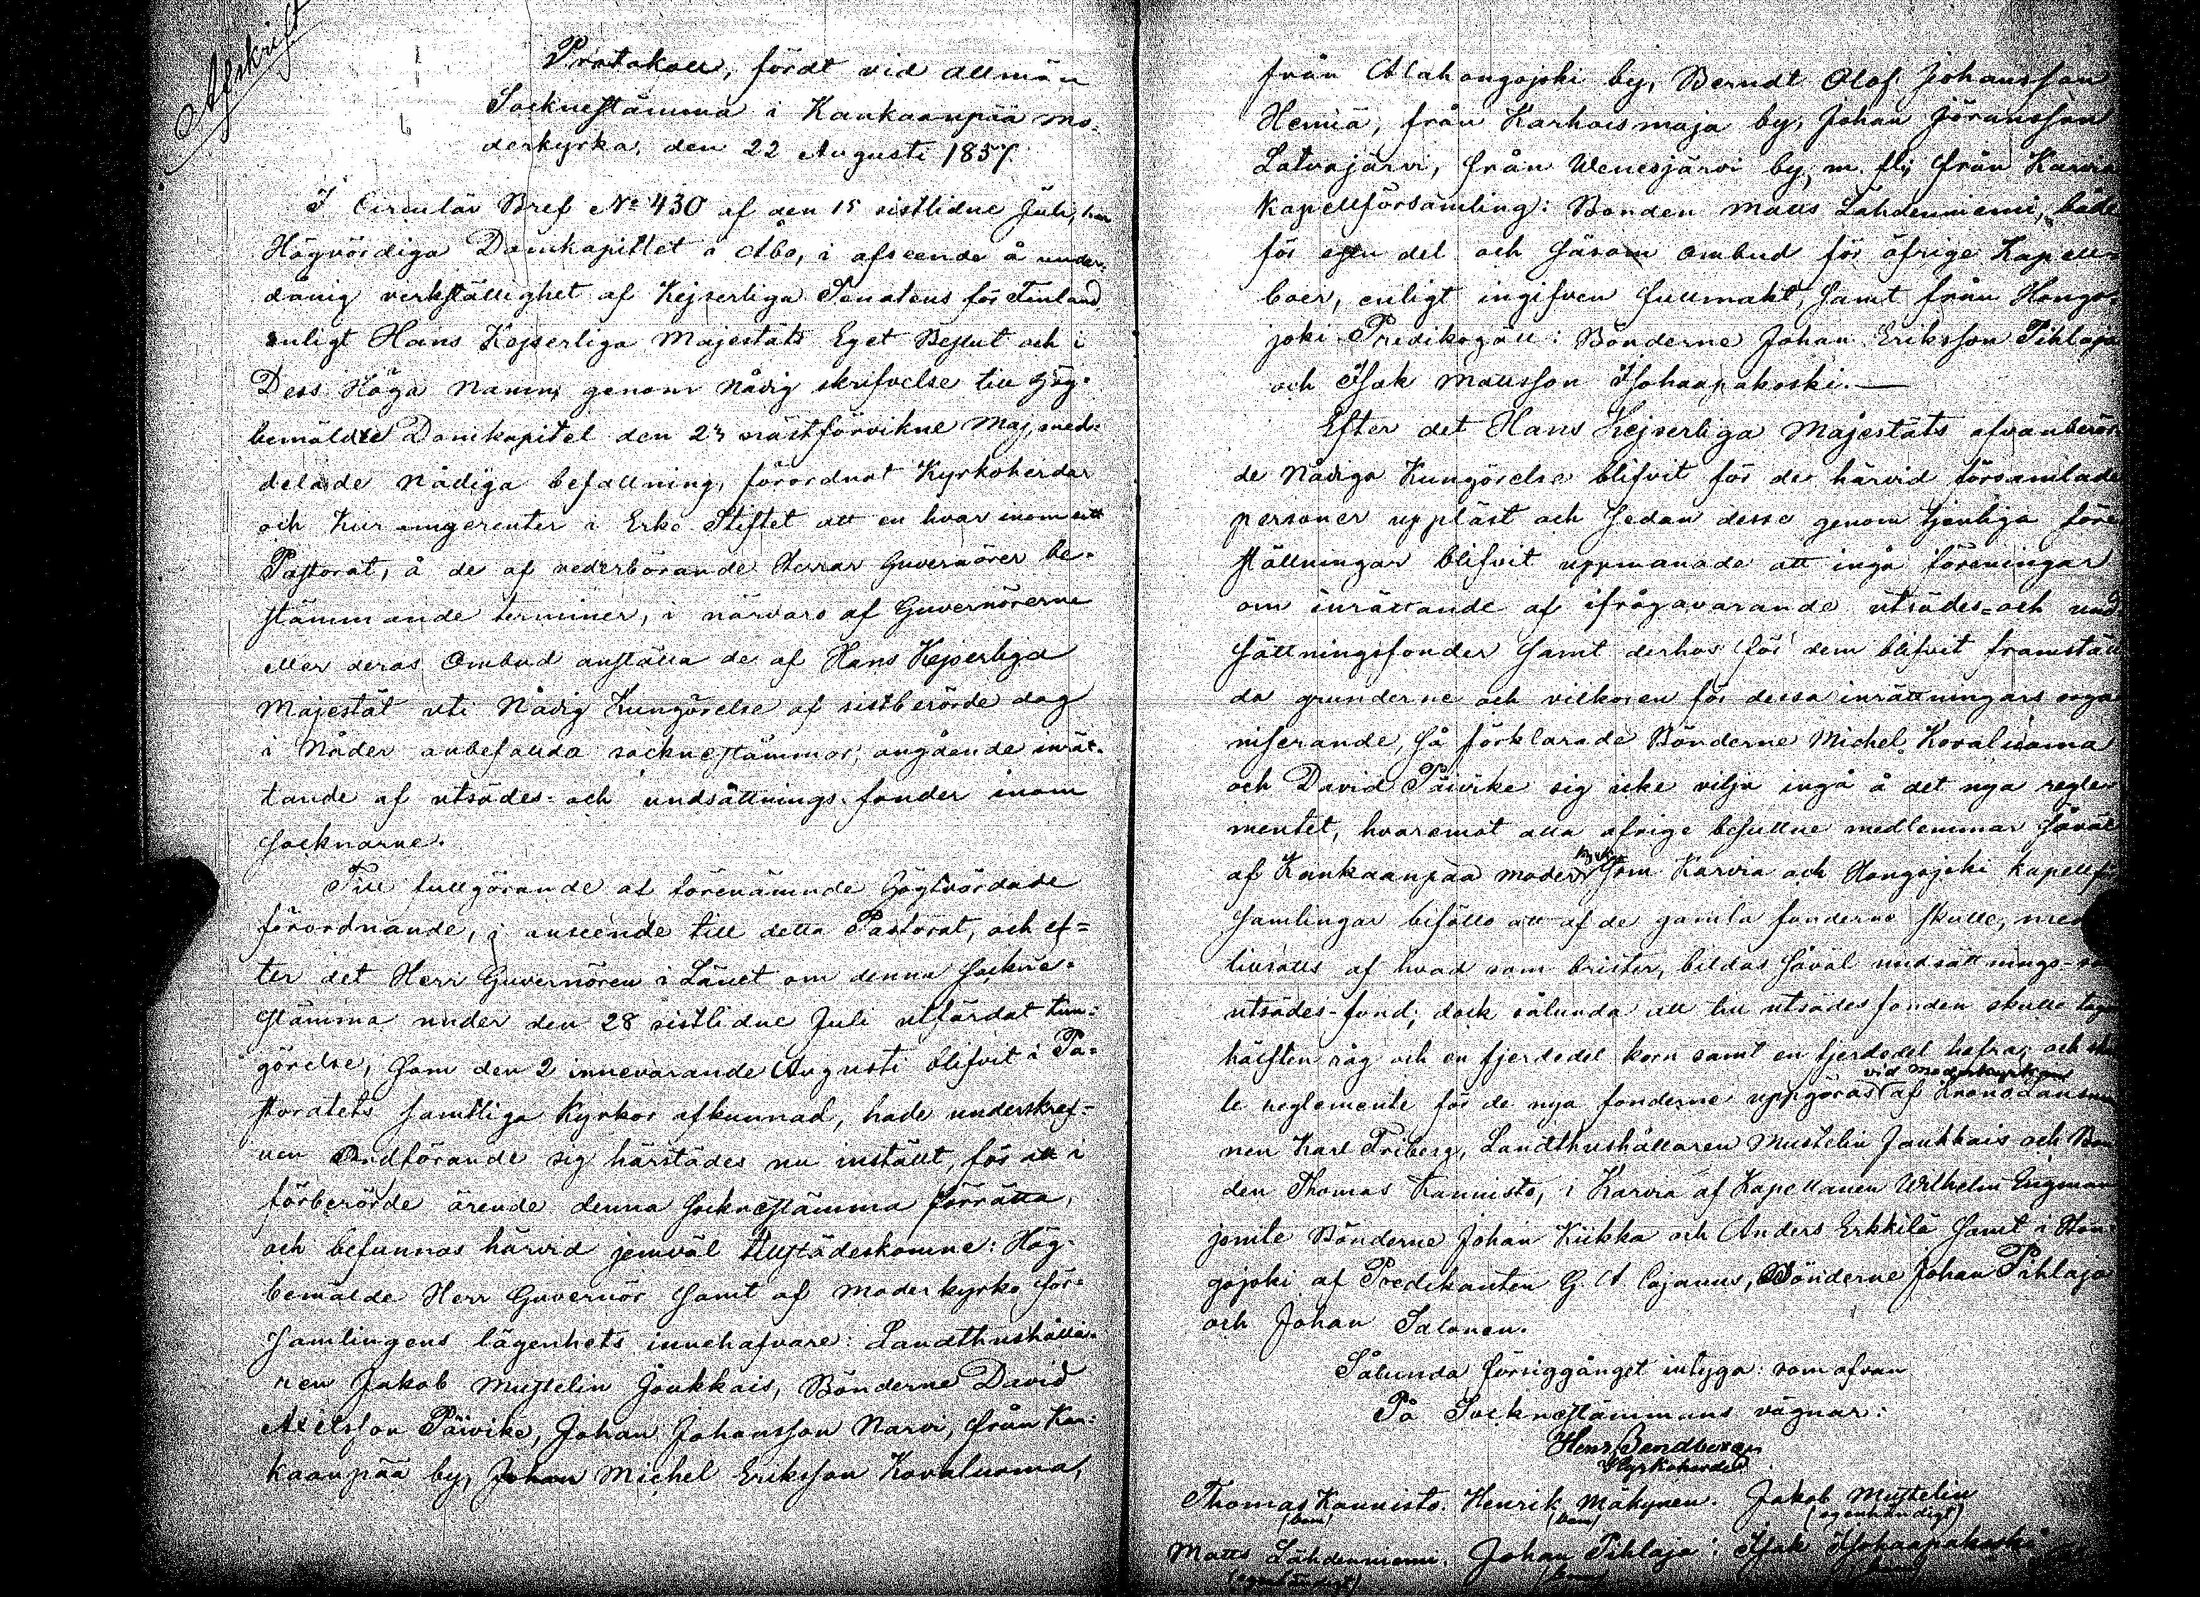 Afskrift
Protokoll, fördt vid allmän
Sockenstämma i Kankaanpää mo-
derkyrka, den 22 Augusti 1857.
I Circulär Bref No 430 af den 15 sistlidne Juli, har
Högvördiga Domkapitlet i Åbo, i afseende å under-
dånig verkställighet af Kejserliga Senatens för Finland,
enligt Hans Kejserliga Majestäts Eget Beslut och i
Dess Höga Namn, genom nådig skrifvelse till Hög-
bemäldte Domkapitel den 23 nästförvikne Maj, med-
delade nådiga befallning, förordnat Kyrkoherdar
och i Erke Stiftet att en hvar inom sitt
Pastorat, å de af vederbörande Herrar Guvernörer be-
stämmande terminer, i närvaro af Guvernörerne
eller deras Ombud anställa de af Hans Kejserliga
Majestät uti Nådig Kungörelse af sistberörde dag
i Nåder anbefallda socknestämmor, angående inrät-
tande af utsädes- och undsättnings-fonder inom
socknarne.
Till fullgörande af förenämnde Högtvördade
förordnande, i anseende till detta Pastorat, och ef-
ter det Herr Guvernören i Länet om denna sockne-
stämma under den 28 sistlidne Juli utfärdat kun-
görelse, som den 2 innevarande Augusti blifvit i Pa-
storatets samtliga Kyrkor afkunnad, hade underskref-
ven Ordförande sig härstädes nu inställt, för att i
förberörde ärende denna socknestämma förrätta,
och befunnos härvid jemväl tillstädeskomne: Hög-
bemälde Herr Guvernör samt af moderkyrko för-
samlingens lägenhets innehafvare: Landthushålla-
ren Jakob Mustelin Joukkais, Bönderne David
Axelsson Päivike, Johan Johansson Narvi, från Kan-
kaanpää by, Johan Michel Eriksson Kovaluoma,
från Alahongojoki by, Berndt Olof Johansson
Hemiä, från Karhoismaja by, Johan Göransson
Latvajärvi, från Wenesjärvi by, m. fl; från Karvia
kapellförsamling: Bonden Matts Lähdenniemi, både
för egen del och såsom ombud för öfrige Kapell-
boer, enligt ingifven fullmakt, samt från Hongo-
joki Predikogäll: Bönderne Johan Eriksson Pihlaja
och Isak Mattsson Isohaapakoski.—
Efter det Hans Kejserliga Majestäts ofvanberör-
de Nådiga Kungörelse blifvit för de härvid församlade
personer uppläst och sedan desse genom tjenliga före
ställningar blifvit uppmanade att ingå föreningar
om inrättande af ifrågavarande utsädes- och und
sättningsfonder samt derhos för dem blifvit framställ
da grunderne och vilkoren för dessa inrättningars orga
niserande, så förklarade Bönderne Michel Kovaluoma
och David Päivike sig icke vilja ingå å det nya regle-
mentet, hvaremot alla öfrige besuttne medlemmar såväl
af Kankaanpää moderkyrko som Karvia och Hongojoki kapellför
samlingar biföllo att af de gamla fonderne skulle, med
tillsatts af hvad som brister, bildas såväl undsättnings- som
utsädes-fond; dock sålunda att till utsädes fonden skulle tagas
hälften råg och en fjerdedel korn samt en fjerdedel hafra; och skul
le reglemente för de nya fonderne uppgöras vid Moderkyrkan af Kronolänsman
nen Karl Friberg, Landthushållaren Mustelin Joukkais och Bon
den Thomas Kannisto, i Karvia af Kapellanen Wilhelm Engman
jemte Bönderne Johan Kiikka och Anders Erkkilä samt i Hon-
gojoki af Predikanten G. A. Cajanus, Bönderne Johan Pihlaja
och Johan Salonen.
Sålunda försiggånget intyga: som ofvan
På Socknestämmans vägnar:
Henr. Sandberg
Kyrkoherde
Thomas Kannisto. Henrik Mäkynen. Jakob Mustelin
(bom) (bom) (egenhändigt)
Matts Lähdenniemi. Johan Pihlaja. Isak Isohaapakoski
(egenhändigt) (bom) (bom)